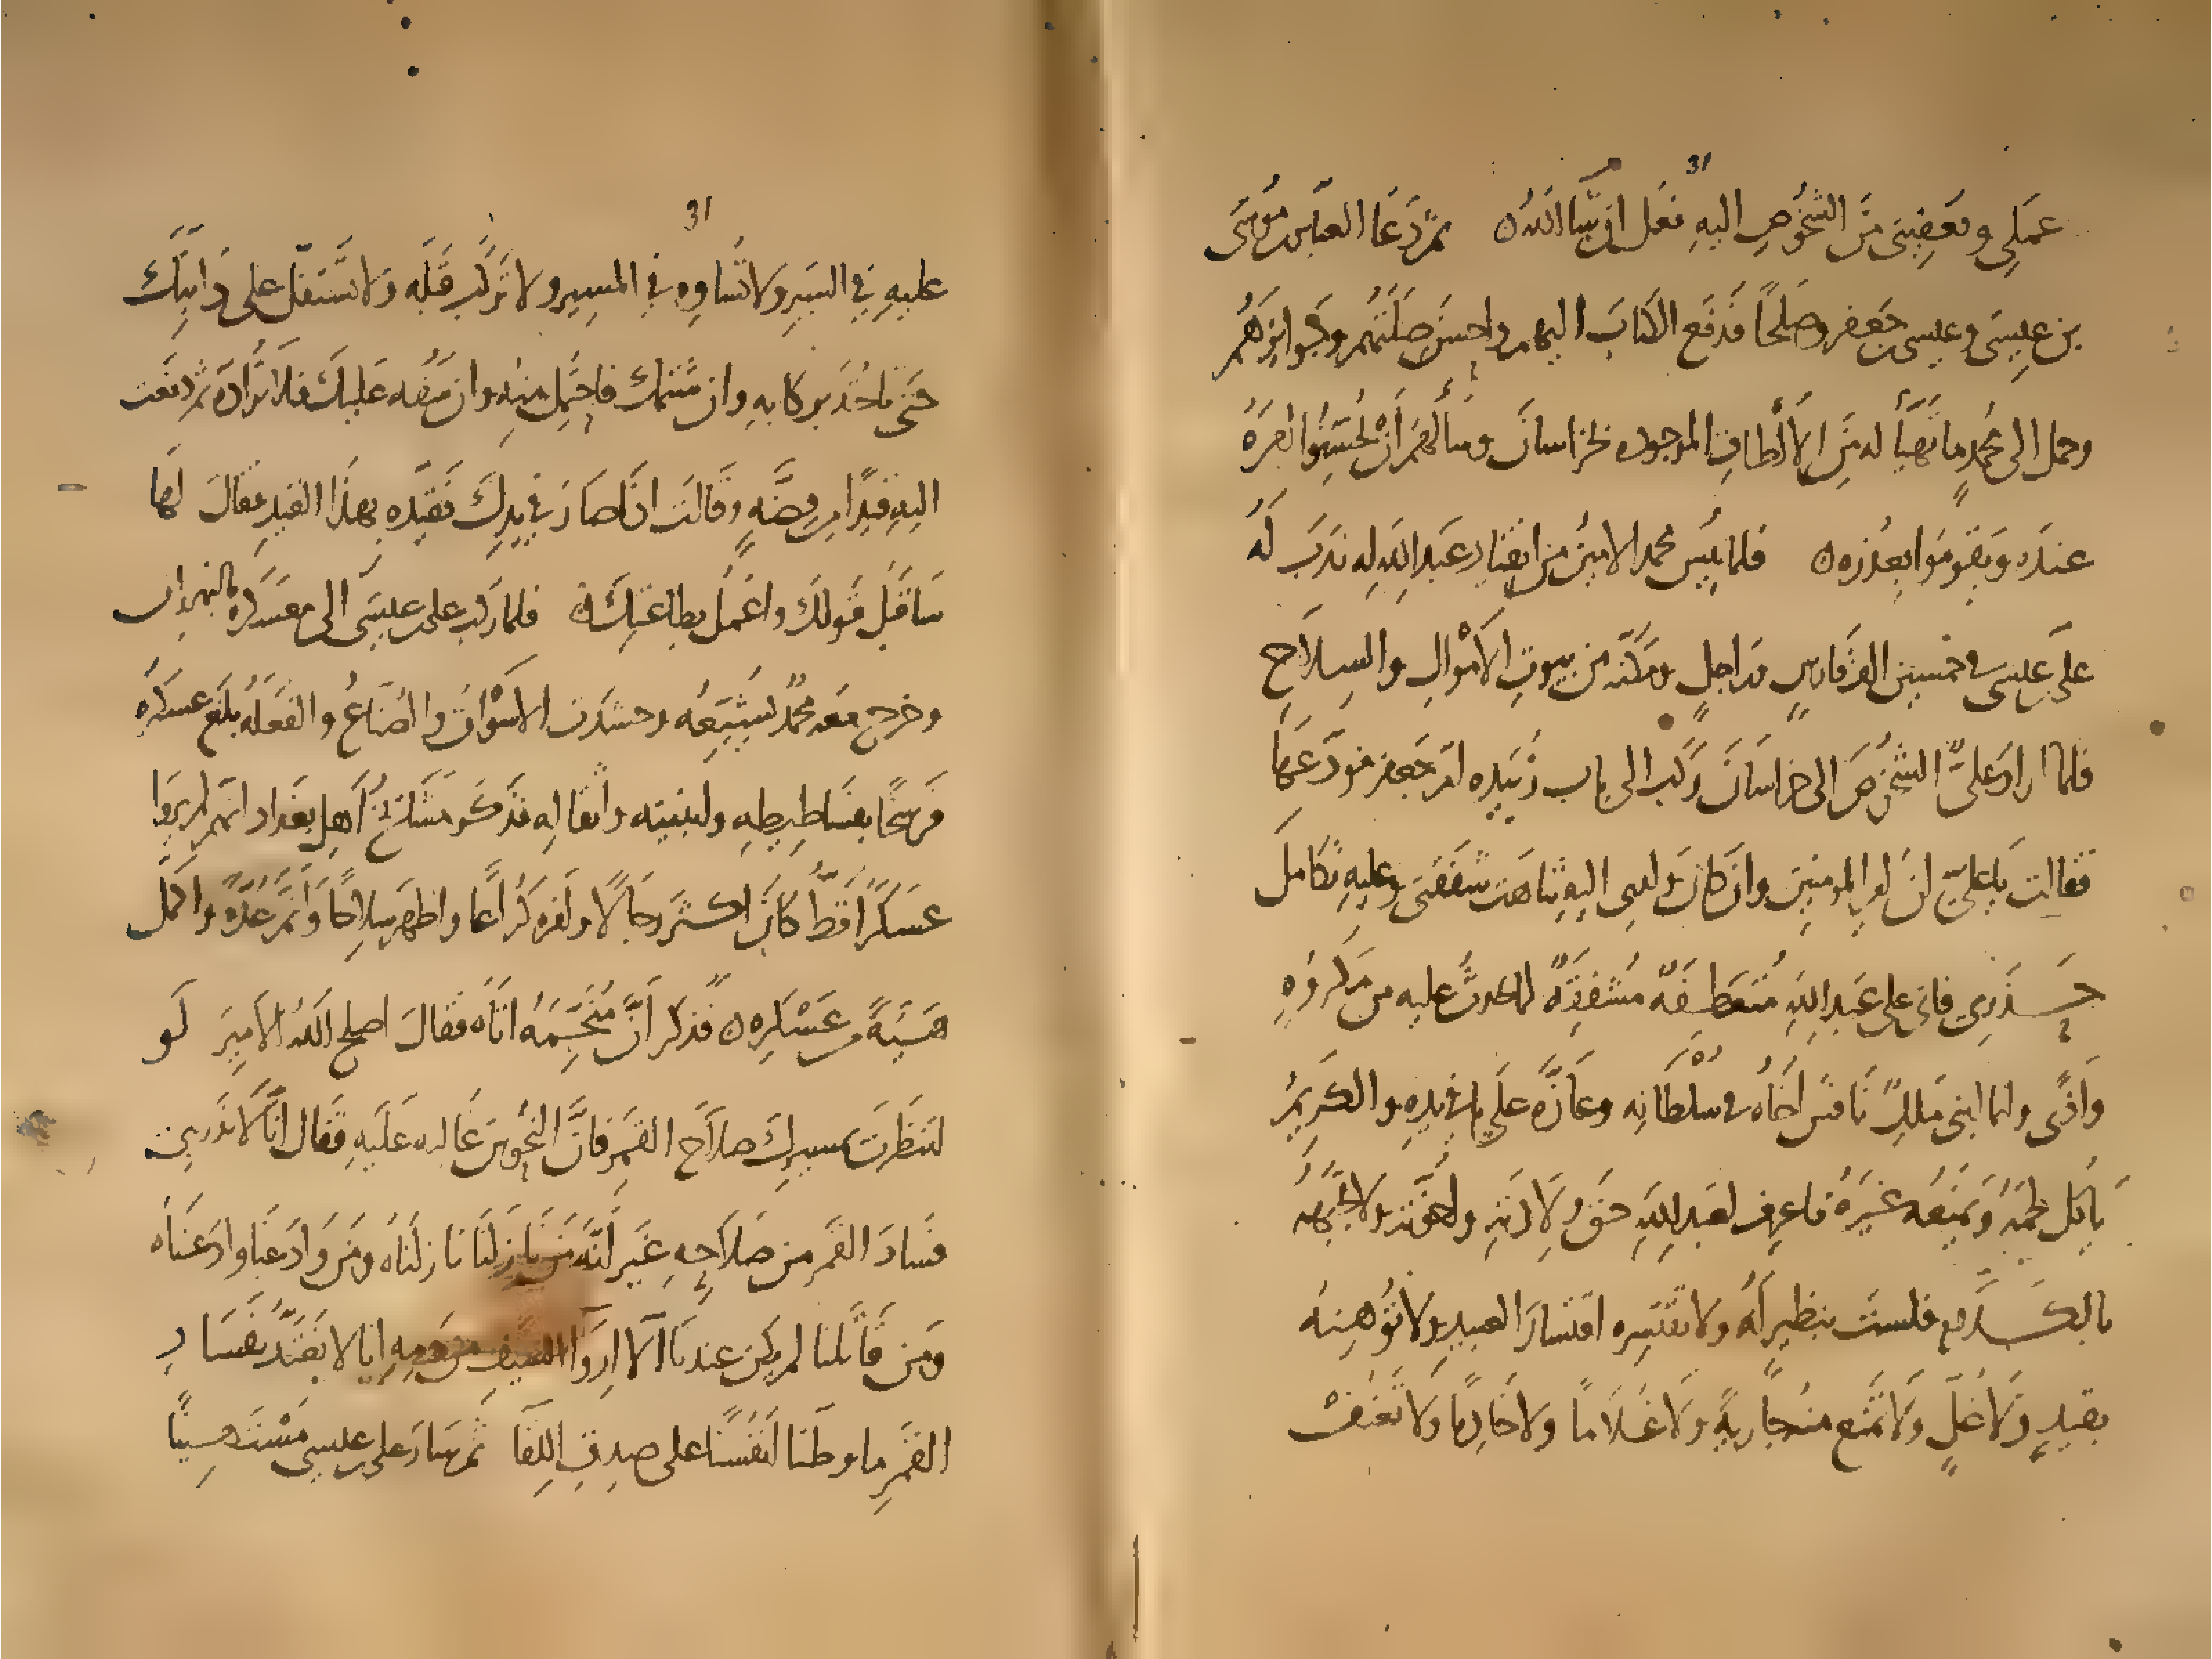 31
عملي ويعفيني من الشخوص اليه فعل ان شا الله ثم دعا العباس بن موسى
بن عيسى وعيسى بن جعفر وصالحًا فدفع الكتاب اليهم واحسن صلتهم وجوايزهم
وحمل الى محمدٍ ما تهيأ له من الألطاف الموجوده بخراسان وسألهم أن يحسنوا امره
عنده ويقوموا بعذره فلما يئس محمد الامين من انقياد عبد الله له ندب له
علي بن عيسى في خمسين الف فارسٍ وراجلٍ ومكنه من بيوت الأموال والسلاح
فلما اراد عليٌّ الشخوص الى خراسان ركب الى باب زبيده ام جعفر مودعها
فقالت يا علي ان امير المومنين وان كان ولدي اليه تناهت شفقتي وعليه تكامل
حذري فاني على عبد الله متعطفةٌ مشفقةٌ لما يحدث عليه من مكروهٍ
واذًى وانما ابني ملكٌ نافس أخاه في سلطانه وعازه على ما في يده والكريم
يأكل لحمه ويمنعه غيره فاعرف لعبد الله حق ولادته واخوته ولا تجبهه
بالكلام فلست بنظيرٍ له ولا تقتسره اقتسار العبيد ولا توهنه
بقيدٍ ولا غلٍّ ولا تمنع منه جاريةً ولا غلامًا ولا خادمًا ولا تعنف
31
عليه في السير ولا تساوه في المسير ولا تركب قبله ولا تستقل على دابتك
حتى تاخذ بركابه وان شتمك فاحتمل منه وان سفه عليك فلا تراده ثم دفعت
اليه قيدًا من فضةٍ وقالت ان صار في يدك فقيده بهذا القيد فقال لها
ساقبل قولك واعمل بطاعتك فلما ركب علي بن عيسى الى معسكره بالنهروان
وخرج معه محمدٌ يشيعه وحشدت الاسواق والصناع والفعله بلغ عسكره
فرسخًا بفساطيطه وابنيته واثقاله فذكر مشايخ أهل بغداد انهم لم يروا
عسكرًا قط كان اكثر رجالًا وافره كراعًا واظهر سلاحًا وأتم عدةً واكمل
هيبةً من عسكره فذكر أن منجمه اتاه فقال اصلح الله الامير لو
انتظرت بمسيرك صلاح القمر فان النحوس غاليه عليه فقال انّا لا ندري
فساد القمر من صلاحه غير انه من نازلنا نازلناه ومن وادعنا وادعناه
ومن قاتلنا لم يكن عندنا الا اروا السيف من دمه انا لا نعتد بفساد
القمر ما وطنا انفسنا على صدق اللقا ثم سار علي بن عيسى مستهينًا